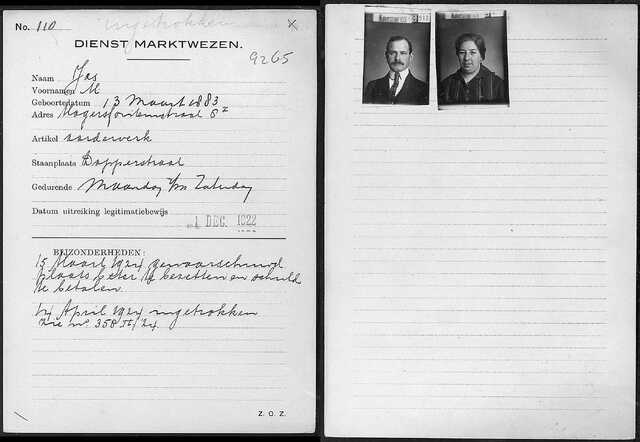 No. 110 ingetrokken ×
DIENST MARKTWEZEN.
9265
Naam Jas
Voornamen M
Geboortedatum 13 Maart 1883
Adres Magersfonteinstraat 8
Artikel aardewerk
Staanplaats Dapperstraat
Gedurende Maandag t/m Zaterdag
Datum uitreiking legitimatiebewijs
1 DEC. 1922
BIJZONDERHEDEN:
15 Maart 1924 gewaarschuwd
plaats beter te bezetten en schuld
te betalen.
14 April 1924 ingetrokken
Zie no 358 /24
Z. O. Z.